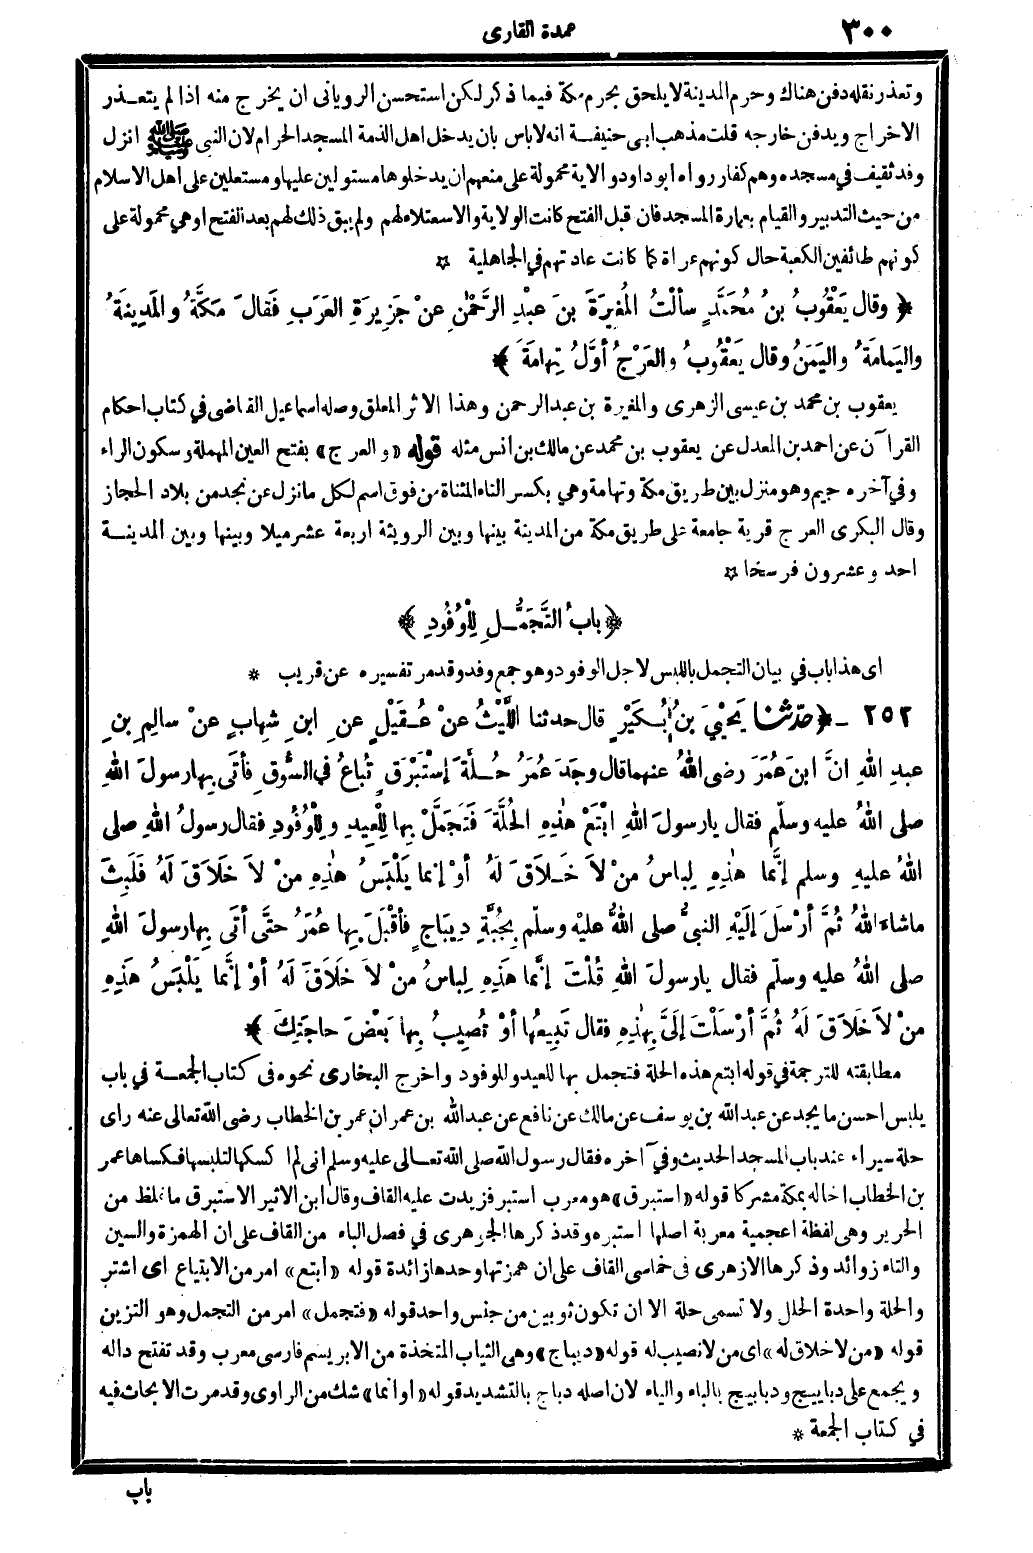 ٣٠٠
عمدة القارى
وتعذر نقله دفن هناك وحرم المدينة لا يلحق بحرم مكة فيما ذكر لكن استحسن الرويانى ان يخرج منه اذا لم يتعـذر
الاخراج ويدفن خارجه قلت مذهب ابى حنيفـة انه لاباس بان يدخل اهل الذمة المسجد الحرام لان النبى ﷺ انزل
وفد ثقيف في مسجده وهم كفار رواه ابو داود والاية محمولة على منعهم ان يدخلوها مستولين عليها ومستعلين على اهل الاسلام
من حيث التدبير والقيام بعمارة المسجد فان قبل الفتح كانت الولاية والاستعلاء لهم ولم يبق ذلك لهم بعد الفتح او هي محمولة على
كونهم طائفين الكعبة حال كونهم عراة كما كانت عادتهم في الجاهلية ☆
﴿ وقال يَعْقُوبُ بنُ مُحَمَّدٍ سألْتُ المُغِيرَةَ بنَ عبْدِ الرَّحْمٰنِ عنْ جَزِيرَةِ العَرَبِ فَقالَ مَكَّةُ والمَدِينَةُ
واليَمامَةُ واليَمَنُ وقال يَعْقُوبُ والعَرْجُ أوَّلُ تِهامَةَ ﴾
يعقوب بن محمد بن عيسى الزهرى والمغيرة بن عبد الرحمن وهذا الاثر المعلق وصله اسماعيل القاضى في كتاب احكام
القرآن عن احمد بن المعدل عن يعقوب بن محمد عن مالك بن انس مثله قوله «والعرج» بفتح العين المهملة وسكون الراء
وفي آخره جيم وهو منزل بين طريق مكة وتهامة وهي بكسر التاء المثناة من فوق اسم لكل ما نزل عن نجد من بلاد الحجاز
وقال البكرى العرج قرية جامعة على طريق مكة من المدينة بينها وبين الرويثة اربعة عشر ميلا وبينها وبين المدينـة
احد وعشرون فرسخا ☆
﴿ بابُ التَّجَمُّـلِ لِلْوُفُودِ ﴾
اى هذا باب في بيان التجمل باللبس لاجل الوفود وهو جمع وفد وقد مر تفسيره عن قريب *
٢٥٢ ـ ﴿ حدّثنا يَحْيَى بنُ بُـكَيْرٍ قال حدثنا اللَّيْثُ عنْ عُـقَيْلٍ عنِ ابنِ شِهابٍ عنْ سالِمِ بنِ
عبدِ اللهِ انَّ ابنَ عُمَرَ رضى اللهُ عنهما قال وجَدَ عُمَرُ حُـلَّةَ إسْتَبْرَقٍ تُباعُ في السُّوقِ فأتَى بِها رسولَ اللهِ
صلى اللهُ عليه وسلّم فقال يارسولَ اللهِ ابْتَعْ هٰذِهِ الحُلَّةَ فَتَجَمَّلْ بِها لِلْعِيدِ ولِلْوُفُودِ فقال رسولُ اللهِ صلى
اللهُ عليهِ وسلم إنَّما هٰذِهِ لِباسُ منْ لاَ خَـلاَقَ لَهُ أوْ إنما يَلْبَسُ هٰذِهِ منْ لاَ خَلاَقَ لَهُ فَلَبِثَ
ماشاءَ اللهُ ثُمَّ أرْسَلَ إلَيْهِ النبىُّ صلى اللهُ عليْه وسلّم بِجُبَّةِ دِيباجٍ فأقْبَلَ بِها عُمَرُ حتَّى أتَى بِها رسولَ اللهِ
صلى اللهُ عليه وسلّم فقال يارسولَ اللهِ قُلْتَ إنَّما هَذِهِ لِباسُ منْ لاَ خَلاَقَ لَهُ أوْ إنَّما يَلْبَسُ هَذِهِ
منْ لاَ خَلاَقَ لَهُ ثُمَّ أرْسَلْتَ إلَىَّ بِهٰذِهِ فقال تَبِيعُها أوْ تُصِيبُ بِها بَعْضَ حاجَتِكَ ﴾
مطابقته للترجمة في قوله ابتع هذه الحلة فتجمل بها للعيد وللوفود واخرج البخارى نحوه فى كتاب الجمعـة في باب
يلبس احسن ما يجد عن عبد الله بن يوسف عن مالك عن نافع عن عبد الله بن عمر ان عمر بن الخطاب رضى الله تعالى عنه راى
حلة سيراء عند باب المسجد الحديث وفي آخره فقال رسول الله صلى الله تعـالى عليه وسلم انى لم اكسكها لتلبسها فكساها عمر
بن الخطاب اخا له بمكة مشركا قوله «استبرق» هو معرب استبر فزيدت عليه القاف وقال ابن الاثير الاستبرق ما غلظ من
الحرير وهى لفظة اعجمية معربة اصلها استبره وقد ذكرها الجوهرى في فصل الباء من القاف على ان الهمزة والسين
والتاء زوائد وذكرها الازهرى فى خماسى القاف على ان همزتها وحدها زائدة قوله «ابتع» امر من الابتياع اى اشتر
والحلة واحدة الحلل ولا تسمى حلة الا ان تكون ثوبين من جنس واحد قوله «فتجمل» امر من التجمل وهو التزين
قوله «من لا خلاق له» اى من لا نصيب له قوله «ديباج» وهى الثياب المتخذة من الابريسم فارسى معرب وقد تفتح داله
ويجمع على دبابيج ودبابيج بالباء والياء لان اصله دباج بالتشديد قوله «او انما» شك من الراوى وقد مرت الابحاث فيه
في كتاب الجمعة *
باب